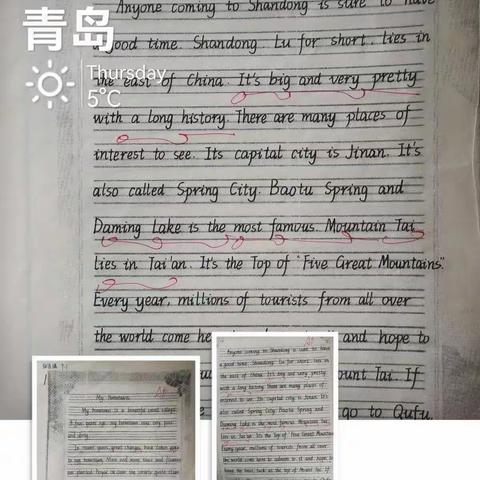 青岛
Thursday
5°C
Anyone coming to Shandong is sure to have
a good time. Shandong. Lu for short, lies in
the east of China. It's big and very pretty
with a long history. There are many places of
interest to see. Its capital city is Jinan. It's
also called Spring City. Baotu Spring and
Daming Lake is the most famous. Mountain Tai
Lies in Tai'an. It's the Top of "Five Great Mountains".
Every year, millions of tourists from all over
the world come and hope to
ount Tai. If
go to Qufu.
My hometown
My hometown is a beautiful small village.
A few years ago, my hometown was very poor
and dirty.
In recent years, great changes have taken place
in my hometown. More and more trees and flowers
are planted.
Anyone coming to Shandong is sure to have
a good time. Shandong. Lu for short, lies in
the east of China. It's big and very pretty
with a long history. There are many places of
interest to see. Its capital city is Jinan. It's
also called Spring City. Baotu Spring and
Daming Lake is the most famous. Mountain Tai
Lies in Tai'an. It's the Top of "Five Great Mountains".
Every year, millions of tourists from all over
the world come and hope
Mount Tai. If